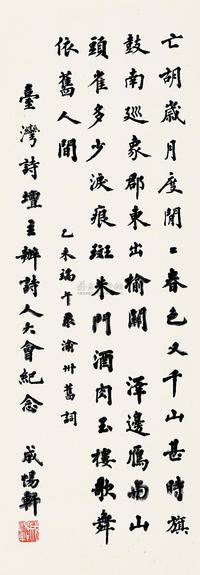 亡胡歲月度閒〻春色又千山甚時旗
鼓南巡象郡東出榆關 澤邊鴈與山
頭雀多少淚痕斑朱門酒肉玉樓歌舞
依舊人間
乙未端午录渝州舊詞
臺灣詩壇主辦詩人大會紀念 成惕軒